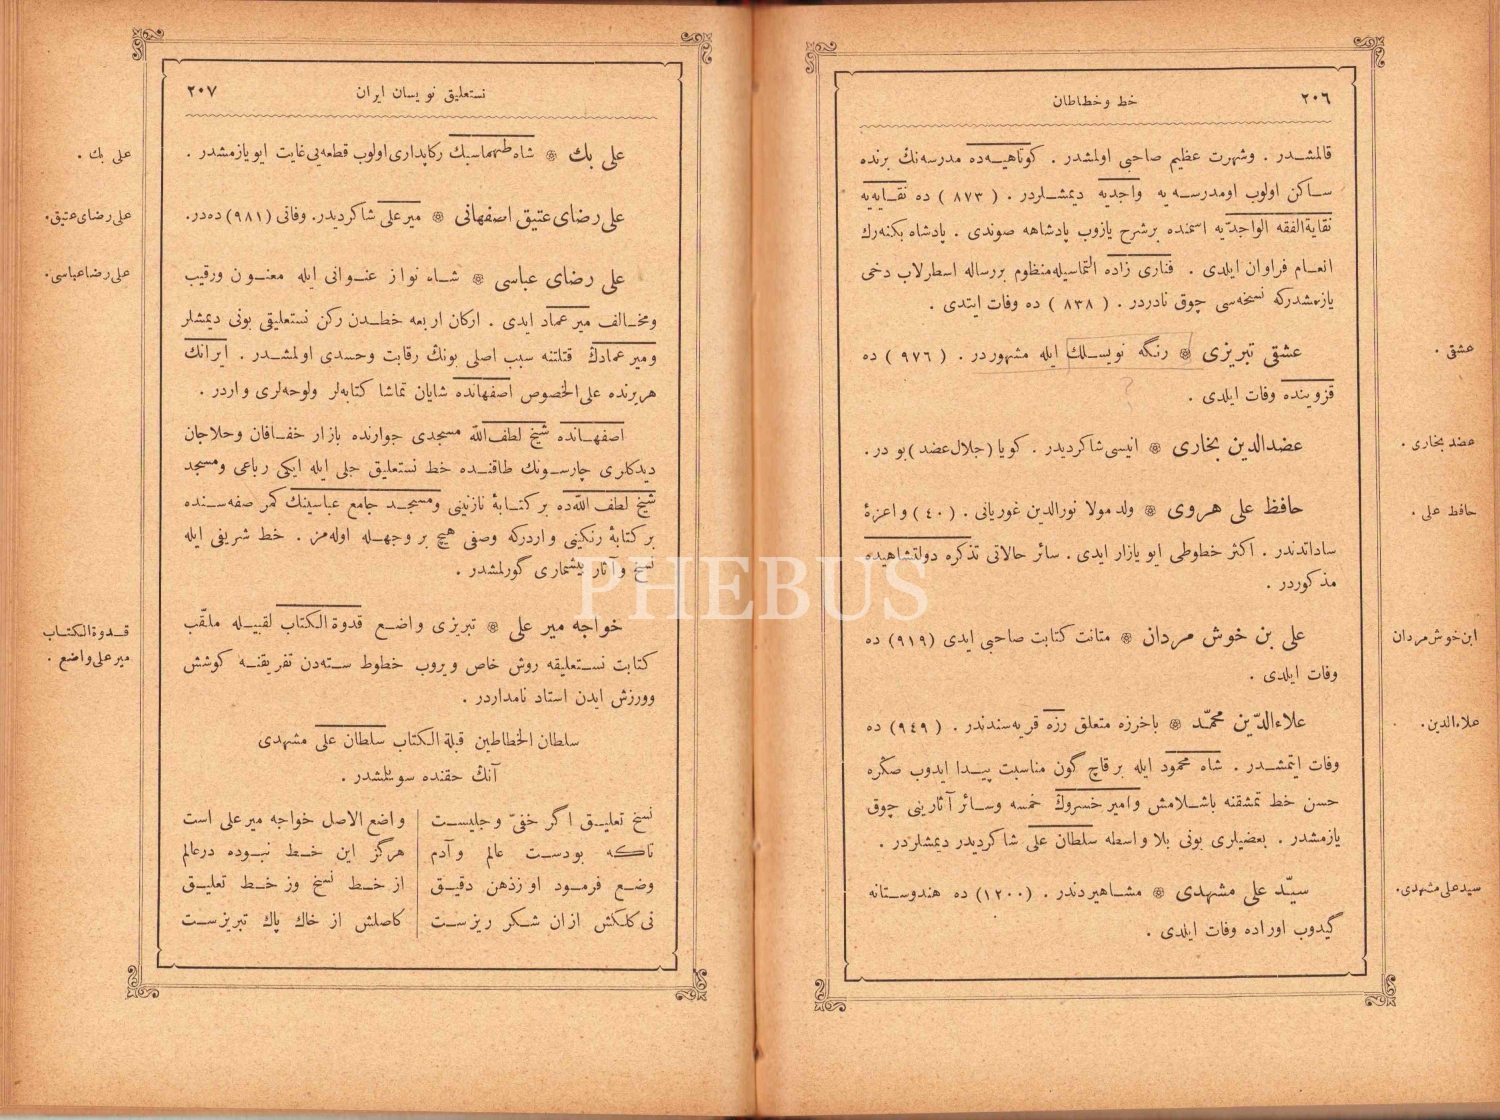 ٢٠٦
خط وخطاطان
قالمشدر . وشهرت عظيم صاحبى اولمشدر . كوتاهيه‌ده مدرسه‌نك برنده
ساكن اولوب اومدرسه يه واجديه ديمشلردر . ( ٨٧٣ ) ده نقايه‌يه
نقايةالفقه الواجديه اسمنده برشرح يازوب پادشاهه صوندى . پادشاه بكنه‌رك
انعام فراوان ايلدى . فنارى زاده التماسيله منظوم بررساله اسطرلاب دخى
يازمشدركه نسخه‌سى چوق نادردر . ( ٨٣٨ ) ده وفات ايتدى .
عشقى تبريزى ❁ رنكه نويسلك ايله مشهوردر . ( ٩٧٦ ) ده
عشقى .
قزوينده وفات ايلدى .
؟
عضدالدين بخارى ❁ انيسى شاكرديدر . كويا (جلال عضد) بو در .
عضد بخارى .
حافظ على هروى ❁ ولد مولا نورالدين غوريانى . (٤٠) واعزۀ
حافظ على .
ساداتدندر . اكثر خطوطى ايو يازار ايدى . سائر حالاتى تذكره دولتشاهيده
مذكوردر .
على بن خوش مردان ❁ متانت كتابت صاحبى ايدى (٩١٩) ده
ابن خوش مردان
وفات ايلدى .
علاءالدّين محمّد ❁ باخرزه متعلق رزه قريه سندندر . (٩٤٩) ده
علاءالدين.
وفات ايتمشدر . شاه محمود ايله برقاچ كون مناسبت پيدا ايدوب صكره
حسن خط تمشقنه باشلامش وامير خسروك خمسه وسائر آثارينى چوق
يازمشدر . بعضيلرى بونى بلا واسطه سلطان على شاكرديدر ديمشلردر .
سيّد على مشهدى ❁ مشاهيردندر . (١٢٠٠) ده هندوستانه
سيد على مشهدى.
گيدوب اوراده وفات ايلدى .
نستعليق نويسان ايران
٢٠٧
على بك ❁ شاه طهماسبك ركابدارى اولوب قطعه‌يى غايت ايو يازمشدر .
على بك .
على رضاى عتيق اصفهانى ❁ ميرعلى شاكرديدر. وفاتى (٩٨١) ده‌در.
على رضاى عتيق.
على رضاى عباسى ❁ شاه نواز عنوانى ايله معنون ورقيب
على رضا عباسى.
ومخالف مير عماد ايدى . اركان اربعه خطدن ركن نستعليقى بونى ديمشلر
ومير عمادك قتلنه سبب اصلى بونك رقابت وحسدى اولمشدر . ايرانك
هريرنده على‌الخصوص اصفهانده شايان تماشا كتابه‌لر ولوحه‌لرى واردر .
اصفهانده شيخ لطف‌الله مسجدى جوارنده بازار خفافان وحلاجان
ديدكلرى چارسونك طاقنده خط نستعليق جلى ايله ايكى رباعى ومسجد
شيخ لطف الله‌ده بر كتابۀ نازنينى ومسجد جامع عباسينك كمر صفه‌سنده
بر كتابۀ رنكينى واردركه وصفى هيچ بر وجهله اوله‌مز . خط شريفى ايله
نسخ وآثار بيشمارى گورلمشدر .
PHEBUS
خواجه مير على ❁ تبريزى واضع قدوة الكتاب لقبيله ملقّب
قدوة الكتاب
مير على واضع .
كتابت نستعليقه روش خاص ويروب خطوط سته‌دن تفريقنه كوشش
وورزش ايدن استاد نامداردر .
سلطان الخطاطين قبلة الكتاب سلطان على مشهدى
آنك حقنده سويلشدر .
نسخ تعليق اگر خفىّ وجليست | واضع الاصل خواجه مير على است
تاكه بودست عالم وآدم | هرگز اين خط نبوده درعالم
وضع فرمود او زذهن دقيق | از خط نسخ وز خط تعليق
نى كلكش ازان شكر ريزست | كاصلش از خاك پاك تبريزست